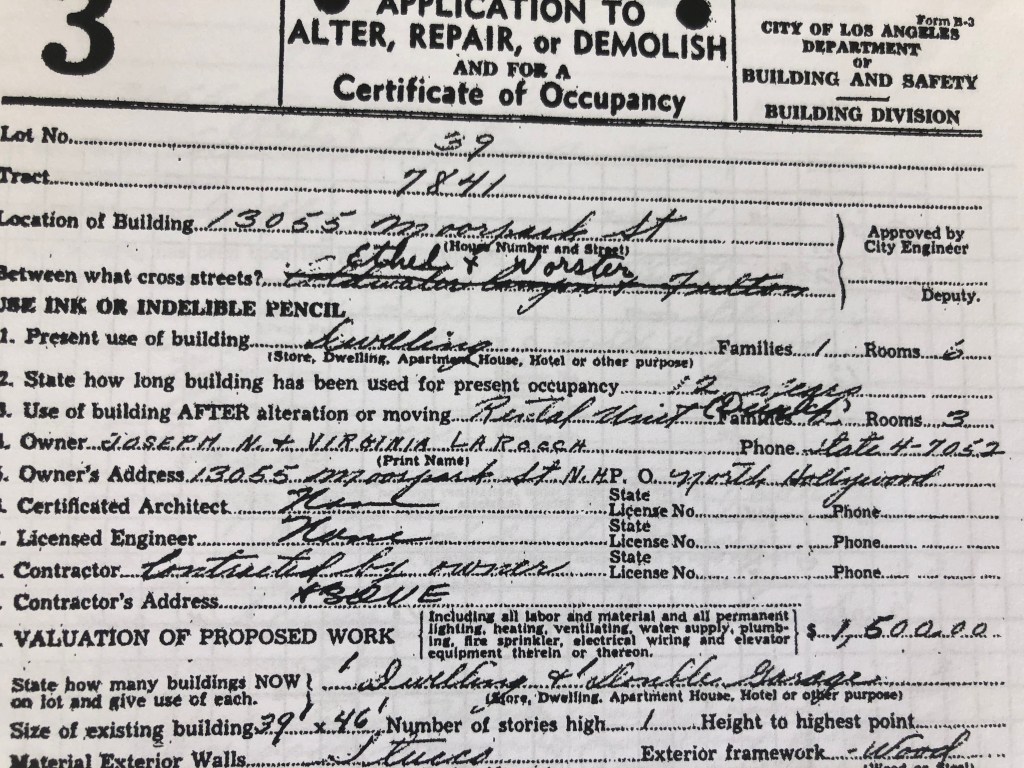 3
APPLICATION TO
ALTER, REPAIR, or DEMOLISH
AND FOR A
Certificate of Occupancy
Form B-3
CITY OF LOS ANGELES
DEPARTMENT
OF
BUILDING AND SAFETY
BUILDING DIVISION
Lot No. 39
Tract 7841
Location of Building 13055 Moorpark St
(House Number and Street)
Approved by
City Engineer
Ethel & Norster
Between what cross streets? Coldwater Canyon & Fulton
Deputy.
USE INK OR INDELIBLE PENCIL
1. Present use of building Dwelling Families 1 Rooms 6
(Store, Dwelling, Apartment House, Hotel or other purpose)
2. State how long building has been used for present occupancy 12 years
3. Use of building AFTER alteration or moving Rental Unit Families Rooms 3
Owner JOSEPH N. & VIRGINIA LAROCCA Phone State 4-7052
(Print Name)
Owner's Address 13055 Moorpark St N.H P. O. North Hollywood
Certificated Architect None State License No. Phone
Licensed Engineer None State License No. Phone
Contractor Contracted by owner State License No. Phone
Contractor's Address ABOVE
VALUATION OF PROPOSED WORK { Including all labor and material and all permanent lighting, heating, ventilating, water supply, plumbing, fire sprinkler, electrical wiring and elevator equipment therein or thereon. } $ 1,500.00
State how many buildings NOW } 1 Dwelling & 1 Double Garage
on lot and give use of each. (Store, Dwelling, Apartment House, Hotel or other purpose)
Size of existing building 39' x 46' Number of stories high 1 Height to highest point
Material Exterior Walls Stucco Exterior framework Wood
(Wood or Steel)